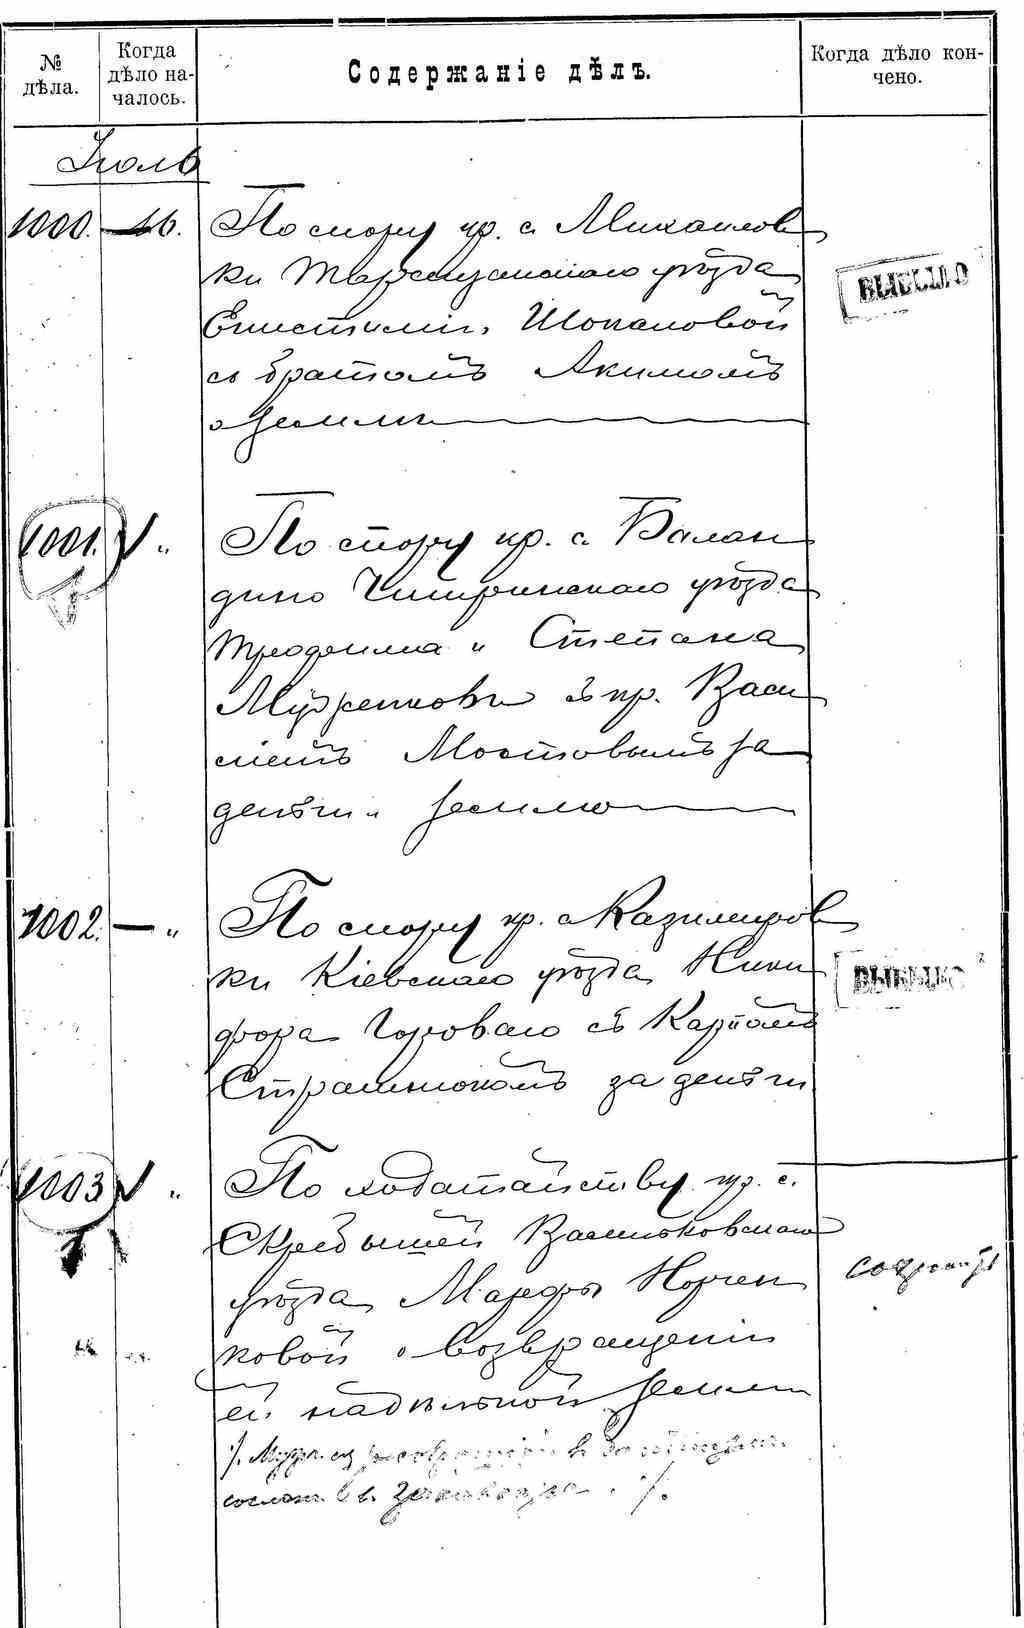 № дѣла.
Когда дѣло началось.
Содержаніе дѣлъ.
Когда дѣло кончено.
Іюль
1000. 16. По спору кр. с. Михайлов
ки Таращанскаго уѣзда
Шопаловой
съ братомъ Акимомъ
о землѣ
1001. V " По спору кр. с. Балан
дино Чигиринскаго уѣзда
Трофима и Степана
съ кр. Васи
ліемъ Мостовымъ за
деньги и землю
1002. — " По спору кр. с. Казимиров
ки Кіевскаго уѣзда Ники
фора Горового съ Карпомъ
за деньги
ВЫБЫЛО
1003 V " По ходатайству кр. с.
Скребышей Васильковскаго
уѣзда Марфы Норчен
ковой о возвращеніи
ей надѣльной земли